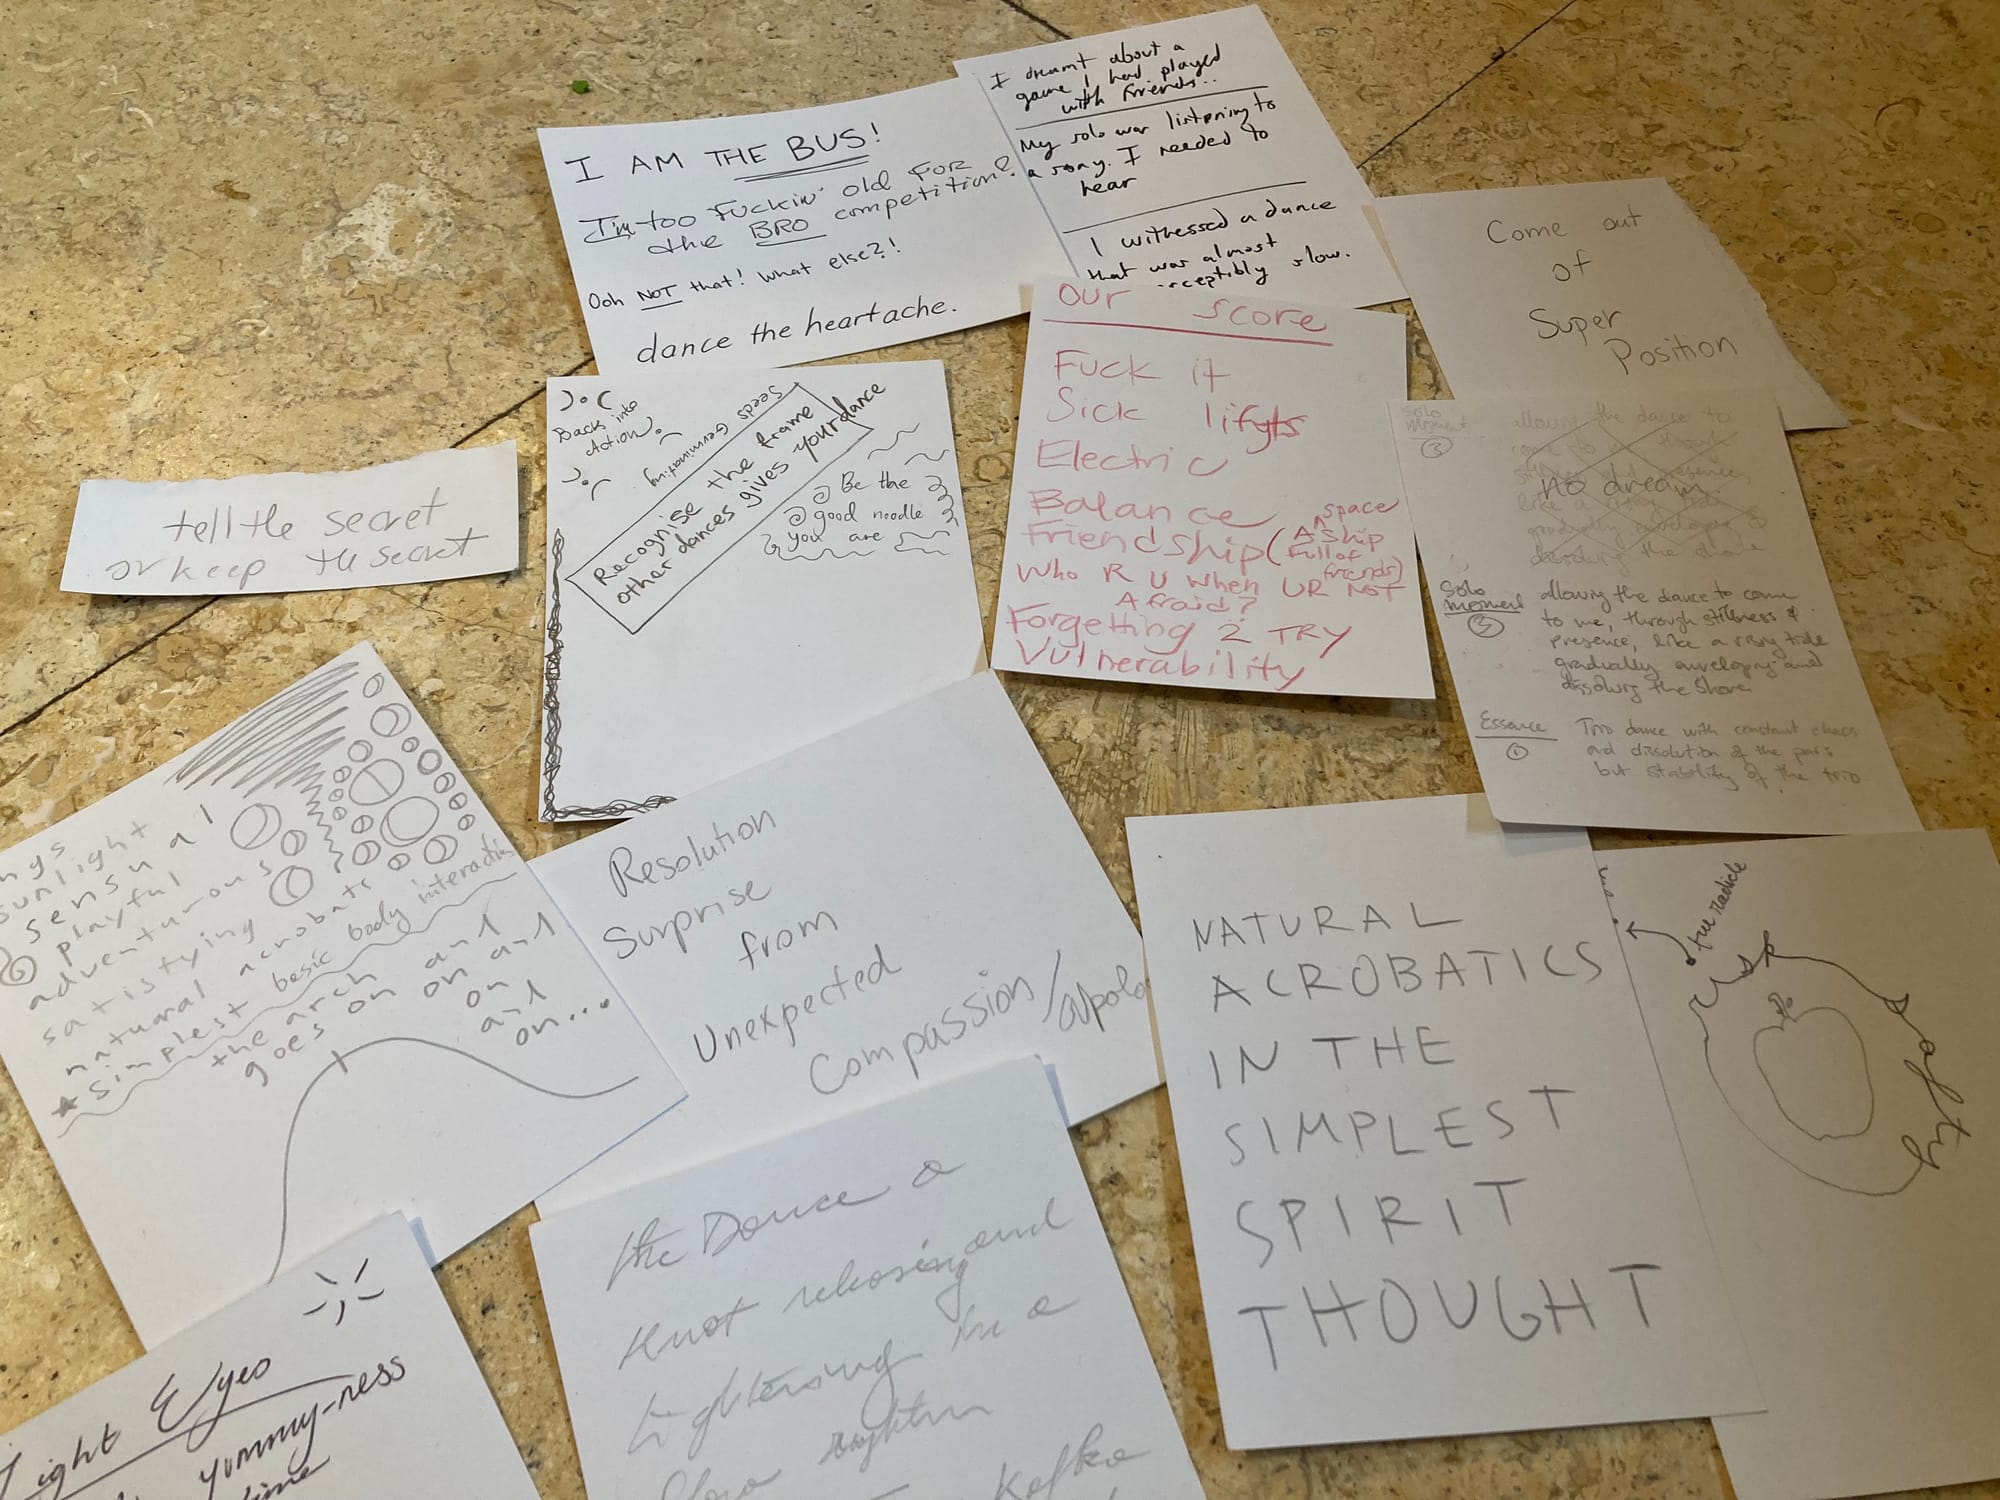 I dreamt about a
game I had played
with friends..
My solo was listening to
a song. I needed to
hear
I witnessed a dance
that was almost
slow.
I AM THE BUS!
I'm too Fuckin' old FOR
the BRO competition?
Ooh NOT that! What else?!
dance the heartache.
Come out
of
Super
Position
our score
Fuck it
Sick lifyts
Electric
Balance
Friendship (A space ship
full of
friends)
Who R U When UR NOT
Afraid?
Forgetting 2 TRY
Vulnerability
Back into
Action.
Seeds Germinating
Recognise the frame
other dances gives your dance
Be the
good noodle
you are
tell the secret
or keep the secret
Solo
Moment
③
allowing the dance to
come to me through
no dream
like a rising tide
gradually
the shore
Solo
moment
③
allowing the dance to come
to me, through stillness &
presence, like a rising tide
gradually enveloping and
dissolving the shore
Essence
①
Trio dance with constant chaos
and dissolution of the pairs
but stability of the trio
ngs
sunlight
sensual
playful
adventurous
satisfying
natural acrobats
simplest basic body interaction
the arch and
goes on on and
on
and
on...
Resolution
Surprise
from
Unexpected
Compassion/apolo
NATURAL
ACROBATICS
IN THE
SIMPLEST
SPIRIT
THOUGHT
the radicle
the Dance a
knot releasing and
tightening in a
slow
Kafka
Light Eyes
yummy-ness